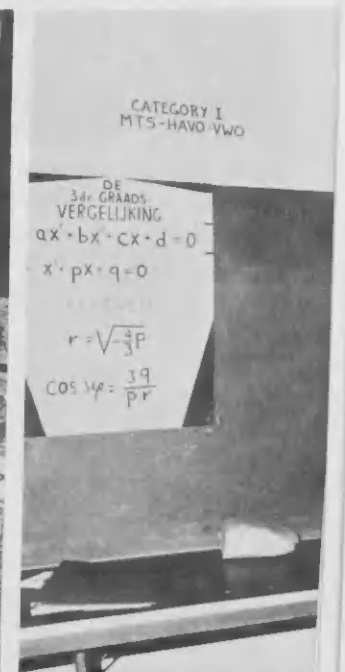 CATEGORY I
MTS-HAVO-VWO
DE
3de GRAADS
VERGELIJKING
ax³+bx²+cx+d=0
x³+px+q=0
r=√-4/3p
COS 3φ=3q/pr